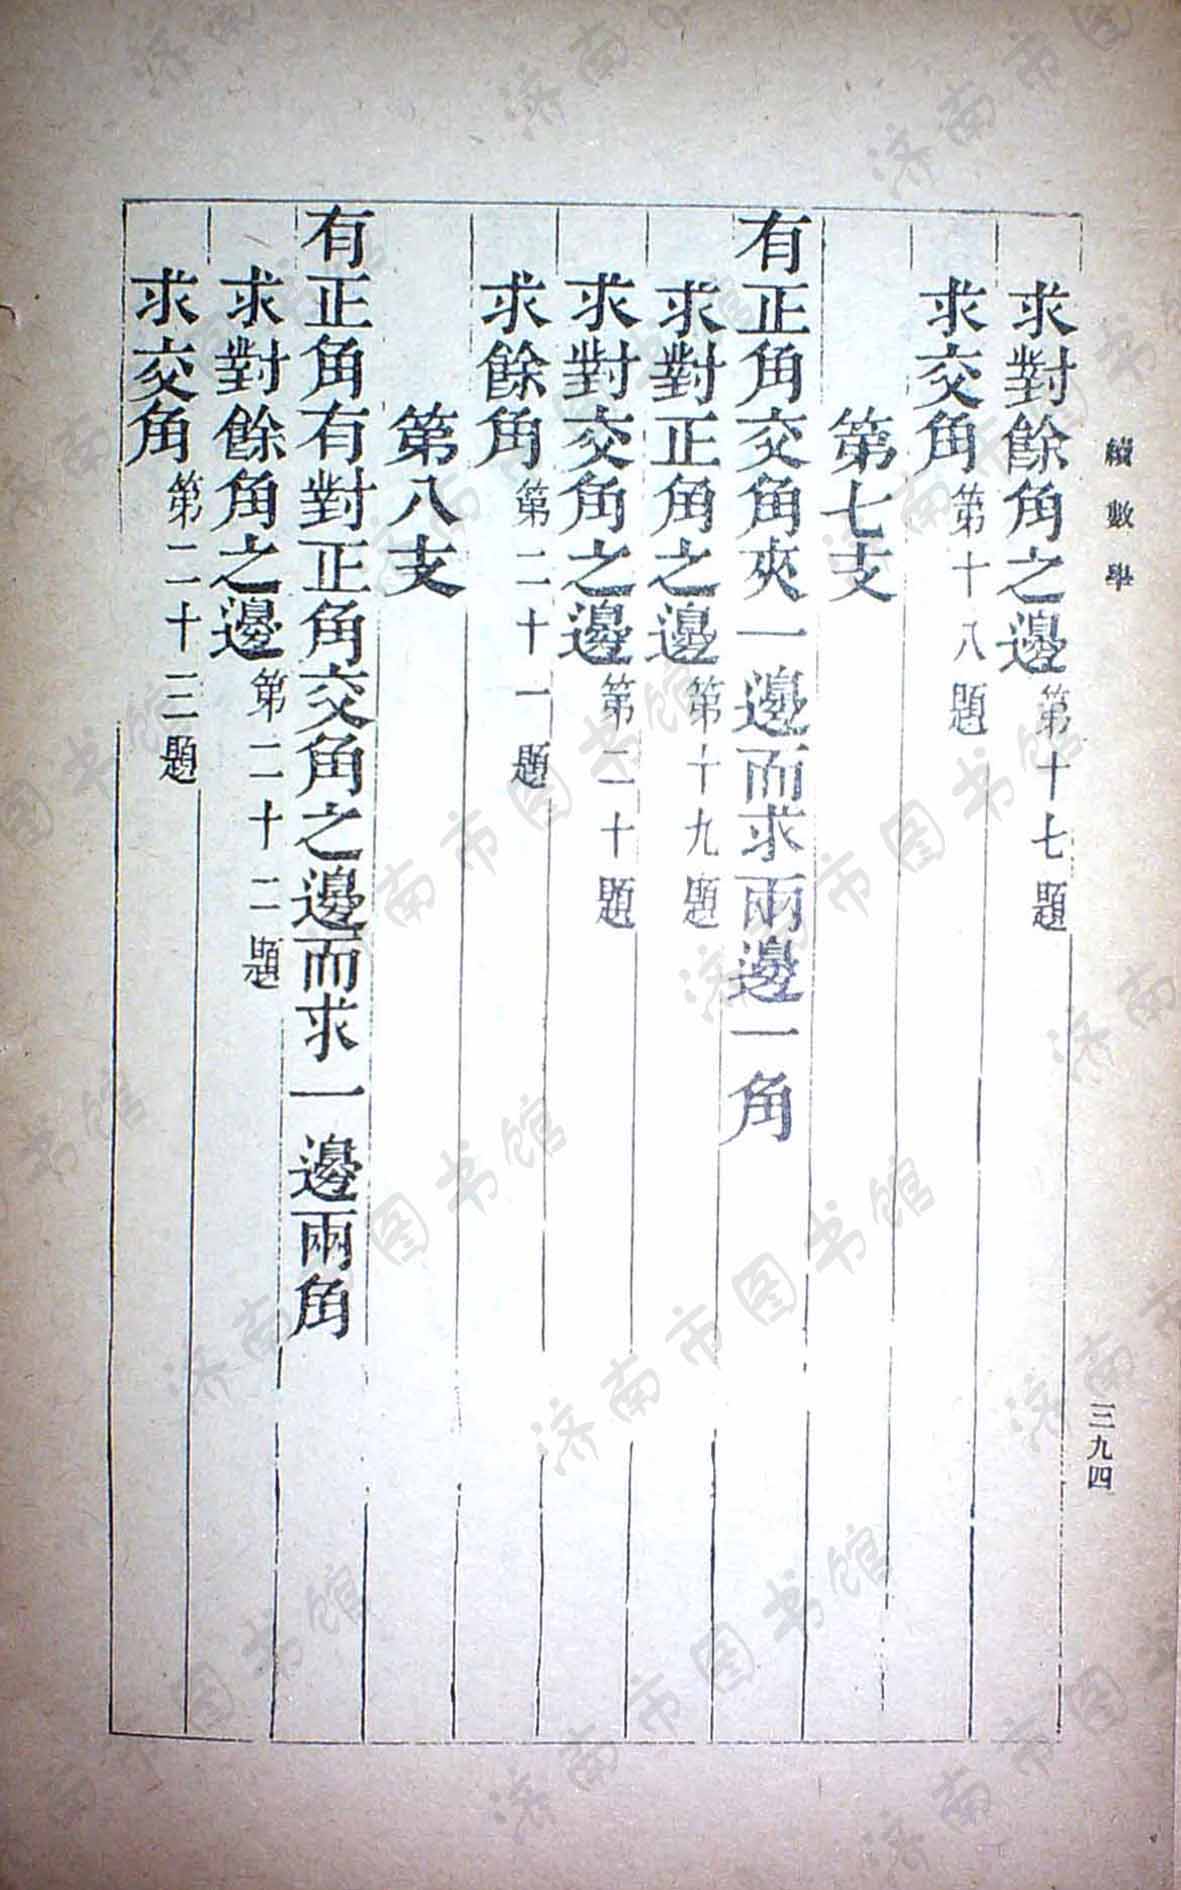 續數學
求對餘角之邊第十七題
求交角第十八題
第七支
有正角交角夾一邊而求兩邊一角
求對正角之邊第十九題
求對交角之邊第二十題
求餘角第二十一題
第八支
有正角有對正角交角之邊而求一邊兩角
求對餘角之邊第二十二題
求交角第二十三題
三九四
济南市图书馆